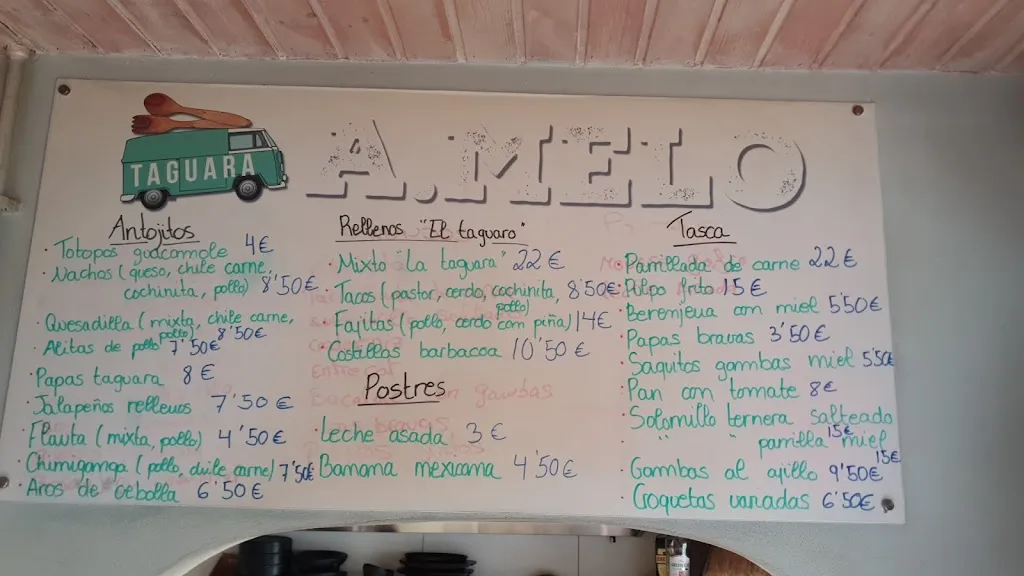 TAGUARA
A.MELO
Antojitos
· Totopos guacamole 4€
· Nachos (queso, chile carne,
cochinita, pollo) 8'50€
· Quesadilla (mixta, chile carne,
pollo) 8'50€
· Alitas de pollo 7'50€
· Papas taguara 8€
· Jalapeños rellenos 7'50€
· Flauta (mixta, pollo) 4'50€
· Chimiganga (pollo, chile carne) 7'50€
· Aros de cebolla 6'50€
Rellenos "El taguaro"
· Mixto "La taguara" 22€
· Tacos (pastor, cerdo, cochinita, 8'50€
pollo)
· Fajitas (pollo, cerdo com piña) 14€
· Costillas barbacoa 10'50€
Postres
· Leche asada 3€
· Banana mexicana 4'50€
Tasca
· Parrillada de carne 22€
· Pulpo frito 15€
· Berenjena con miel 5'50€
· Papas bravas 3'50€
· Saquitos gambas miel 5'50€
· Pan con tomate 8€
· Solomillo ternera salteado
15€
· " " parrilla miel
15€
· Gambas al ajillo 9'50€
· Croquetas variadas 6'50€